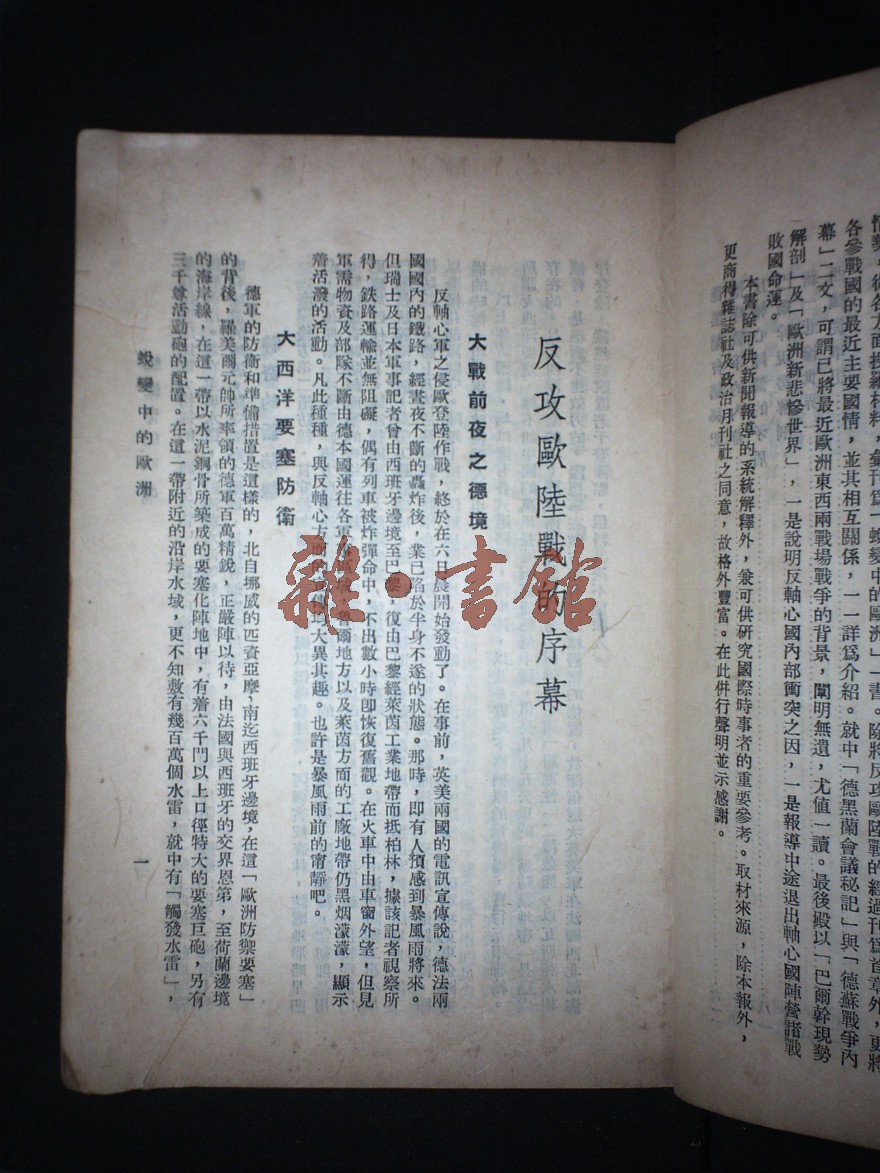 各參戰國的最近主要國情，並其相互關係，一一詳爲介紹。就中「德黑蘭會議秘記」與「德蘇戰爭內
幕」二文，可謂已將最近歐洲東西兩戰場戰爭的背景，闡明無遺，尤值一讀。最後殿以「巴爾幹現勢
解剖」及「歐洲新悲慘世界」，一是說明反軸心國內部衝突之因，一是報導中途退出軸心國陣營諸戰
敗國命運。
本書除可供新聞報導的系統解釋外，兼可供研究國際時事者的重要參考。取材來源，除本報外，
更商得雜誌社及政治月刊社之同意，故格外豐富。在此併行聲明並示感謝。
反攻歐陸戰的序幕
大戰前夜之德境
反軸心軍之侵歐登陸作戰，終於在六日晨開始發動了。在事前，英美兩國的電訊宣傳說，德法兩
國國內的鐵路，經晝夜不斷的轟炸後，業已陷於半身不遂的狀態。那時，即有人預感到暴風雨將來。
但瑞士及日本軍事記者曾由西班牙邊境至巴黎，復由巴黎經萊茵工業地帶而抵柏林，據該記者視察所
得，鐵路運輸並無阻礙，偶有列車被炸彈命中，不出數小時即恢復舊觀。在火車中由車窗外望，但見
軍需物資及部隊不斷由德本國運往各軍，魯爾地方以及萊茵方面的工廠地帶仍黑烟濛濛，顯示
着活潑的活動。凡此種種，與反軸心方面的大異其趣。也許是暴風雨前的甯靜吧。
大西洋要塞防衛
德軍的防衛和準備措置是這樣的，北自挪威的匹資亞摩，南迄西班牙邊境，在這「歐洲防禦要塞」
的背後，羅美爾元帥所率領的德軍百萬精銳，正嚴陣以待，由法國與西班牙的交界恩第，至荷蘭邊境
的海岸線，在這一帶以水泥鋼骨所築成的要塞化陣地中，有着六千門以上口徑特大的要塞巨砲，另有
三千尊活動砲的配置。在這一帶附近的沿岸水域，更不知敷有幾百萬個水雷，就中有「觸發水雷」，
蛻變中的歐洲
一
雜·書館